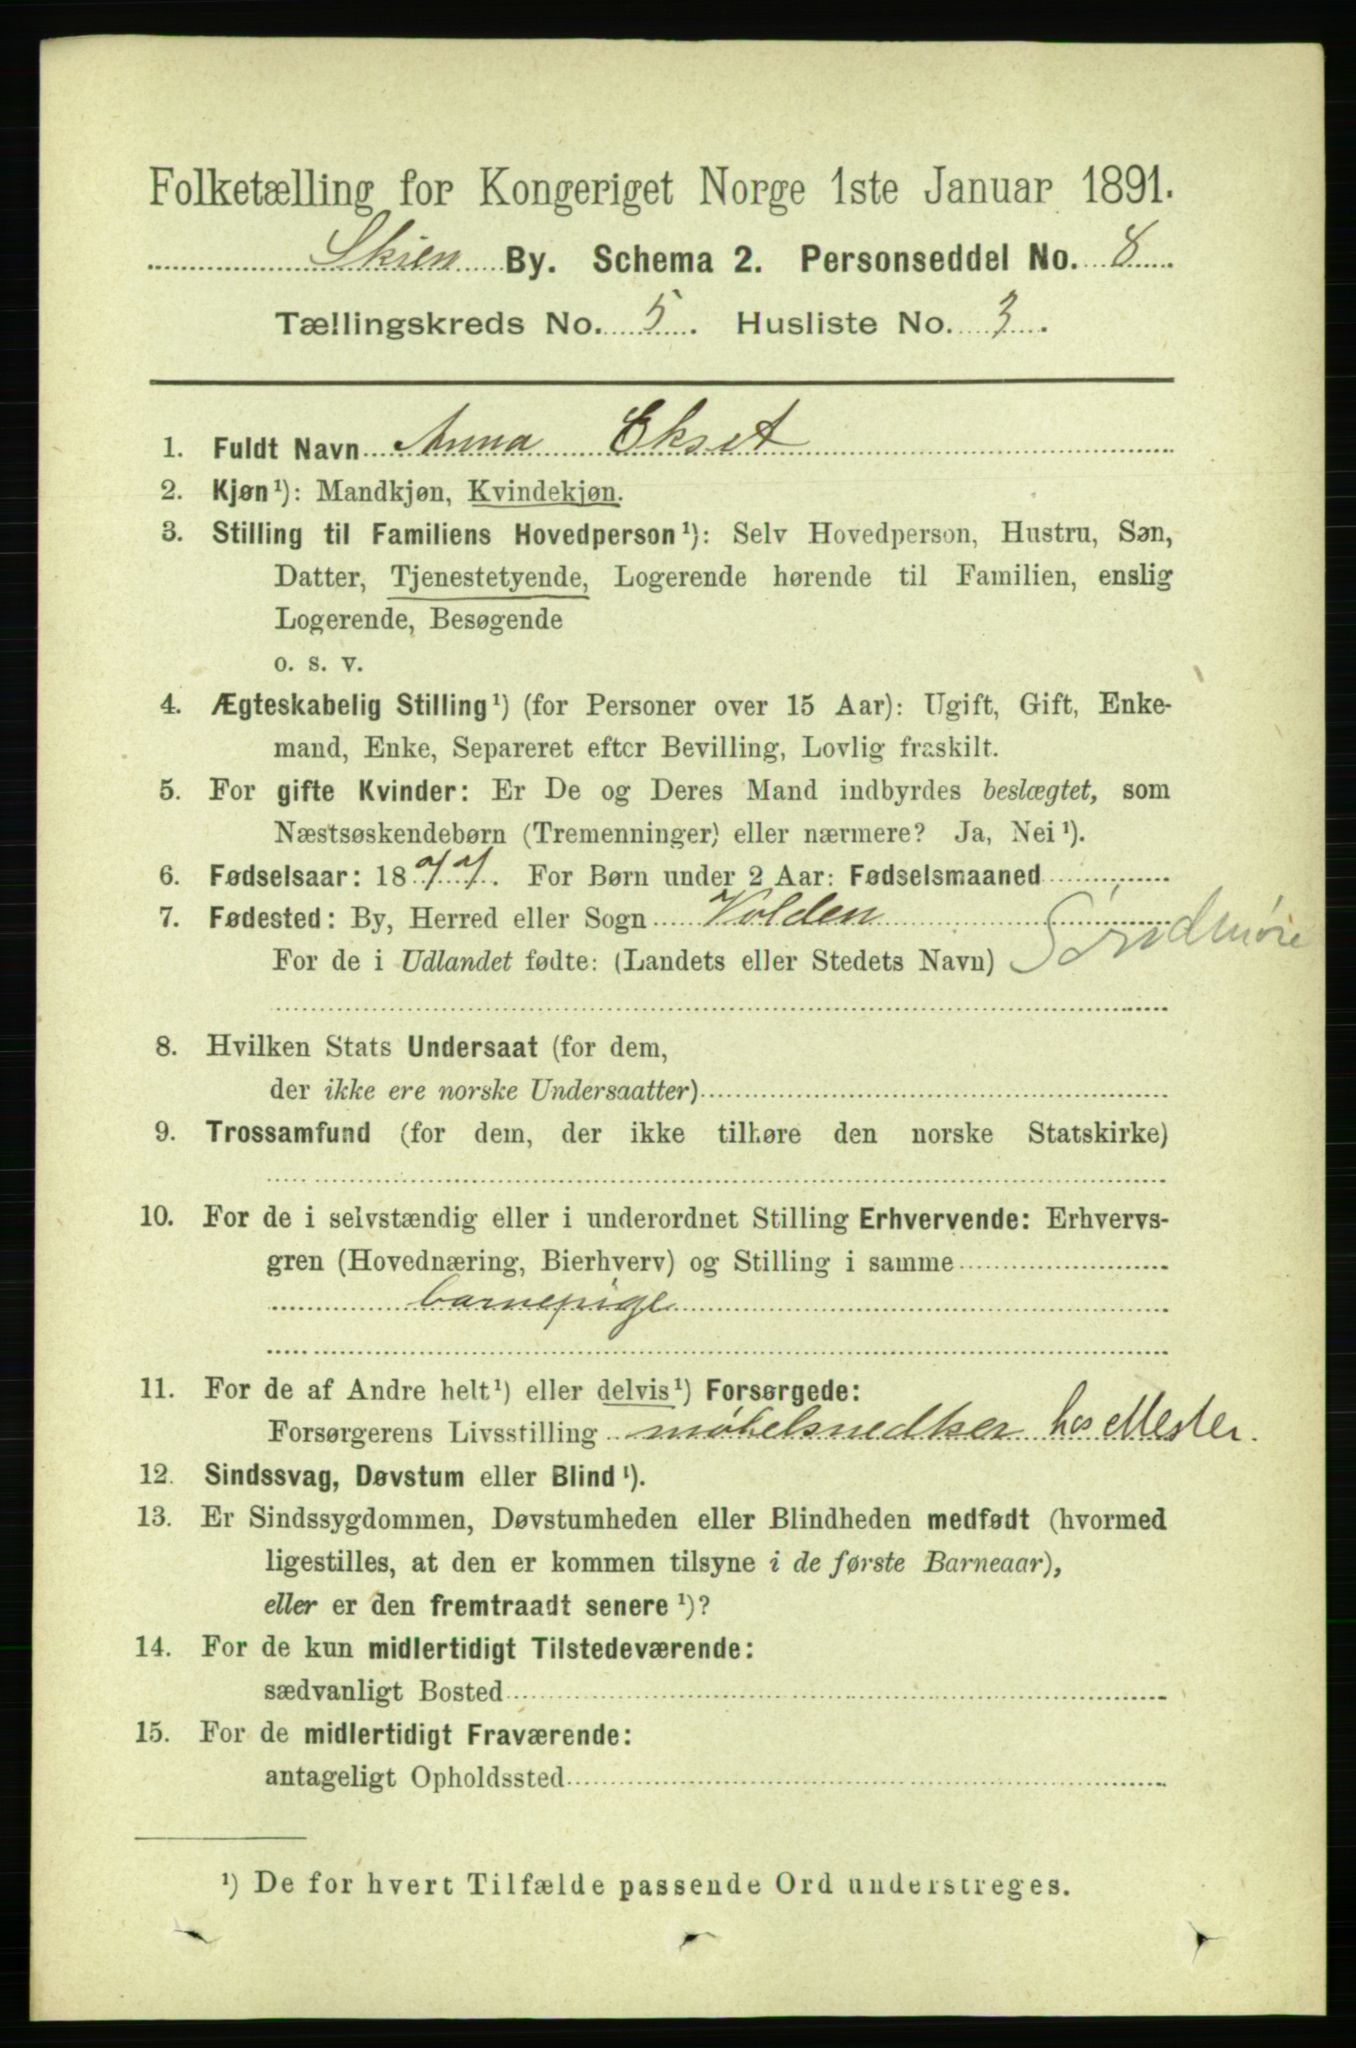 Folketælling for Kongeriget Norge 1ste Januar 1891.
Skien By. Schema 2. Personseddel No. 8.
Tællingskreds No. 5. Husliste No. 3.
1. Fuldt Navn Anna Ekset
2. Kjøn¹): Mandkjøn, Kvindekjøn.
3. Stilling til Familiens Hovedperson¹): Selv Hovedperson, Hustru, Søn,
Datter, Tjenestetyende, Logerende hørende til Familien, enslig
Logerende, Besøgende
o. s. v.
4. Ægteskabelig Stilling¹) (for Personer over 15 Aar): Ugift, Gift, Enke-
mand, Enke, Separeret efter Bevilling, Lovlig fraskilt.
5. For gifte Kvinder: Er De og Deres Mand indbyrdes beslægtet, som
Næstsøskendebørn (Tremenninger) eller nærmere? Ja, Nei¹).
6. Fødselsaar: 1877. For Børn under 2 Aar: Fødselsmaaned
7. Fødested: By, Herred eller Sogn Volden Søndmøre
For de i Udlandet fødte: (Landets eller Stedets Navn)
8. Hvilken Stats Undersaat (for dem,
der ikke ere norske Undersaatter)
9. Trossamfund (for dem, der ikke tilhøre den norske Statskirke)
10. For de i selvstændig eller i underordnet Stilling Erhvervende: Erhvervs-
gren (Hovednæring, Bierhverv) og Stilling i samme
barnepige
11. For de af Andre helt¹) eller delvis¹) Forsørgede:
Forsørgerens Livsstilling møbelsnedker hos Mester.
12. Sindssvag, Døvstum eller Blind¹).
13. Er Sindssygdommen, Døvstumheden eller Blindheden medfødt (hvormed
ligestilles, at den er kommen tilsyne i de første Barneaar),
eller er den fremtraadt senere¹)?
14. For de kun midlertidigt Tilstedeværende:
sædvanligt Bosted
15. For de midlertidigt Fraværende:
antageligt Opholdssted
¹) De for hvert Tilfælde passende Ord understreges.